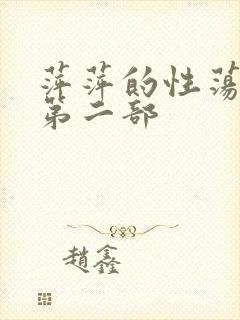 萍萍的性荡
第二部
趙鑫